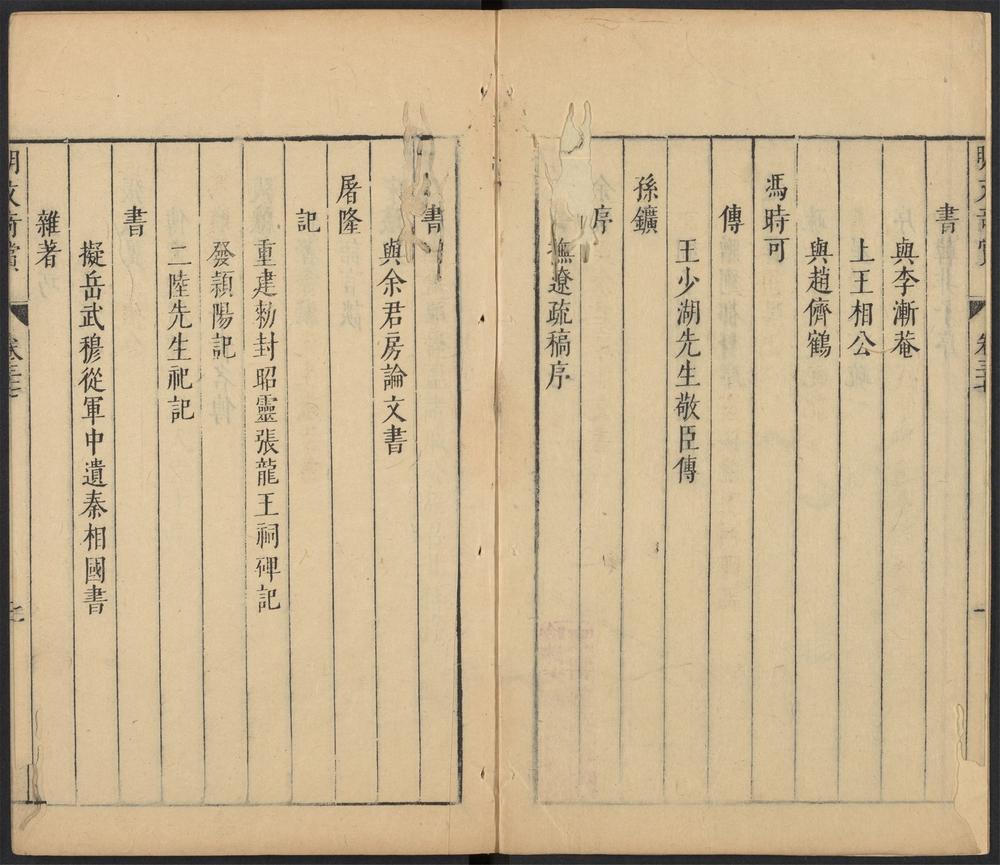 書
與李漸菴
上王相公
與趙儕鶴
馮時可
傳
王少湖先生敬臣傳
孫鑛
序
撫遼疏稿序
書
與余君房論文書
屠隆
記
重建勑封昭靈張龍王祠碑記
發潁陽記
二陸先生祀記
書
擬岳武穆從軍中遺秦相國書
雜著